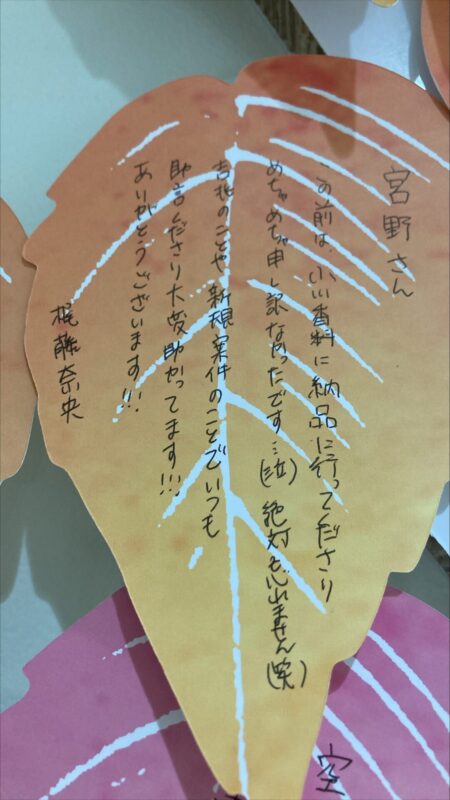 宮野さん
この前は、小川香料に納品に行ってくださり
めちゃめちゃ申し訳なかったです…(泣) 絶対忘れません(笑)
のことや新規案件のことでいつも
助言くださり大変助かってます!!!
ありがとうございます!!!
梶藤奈央
空